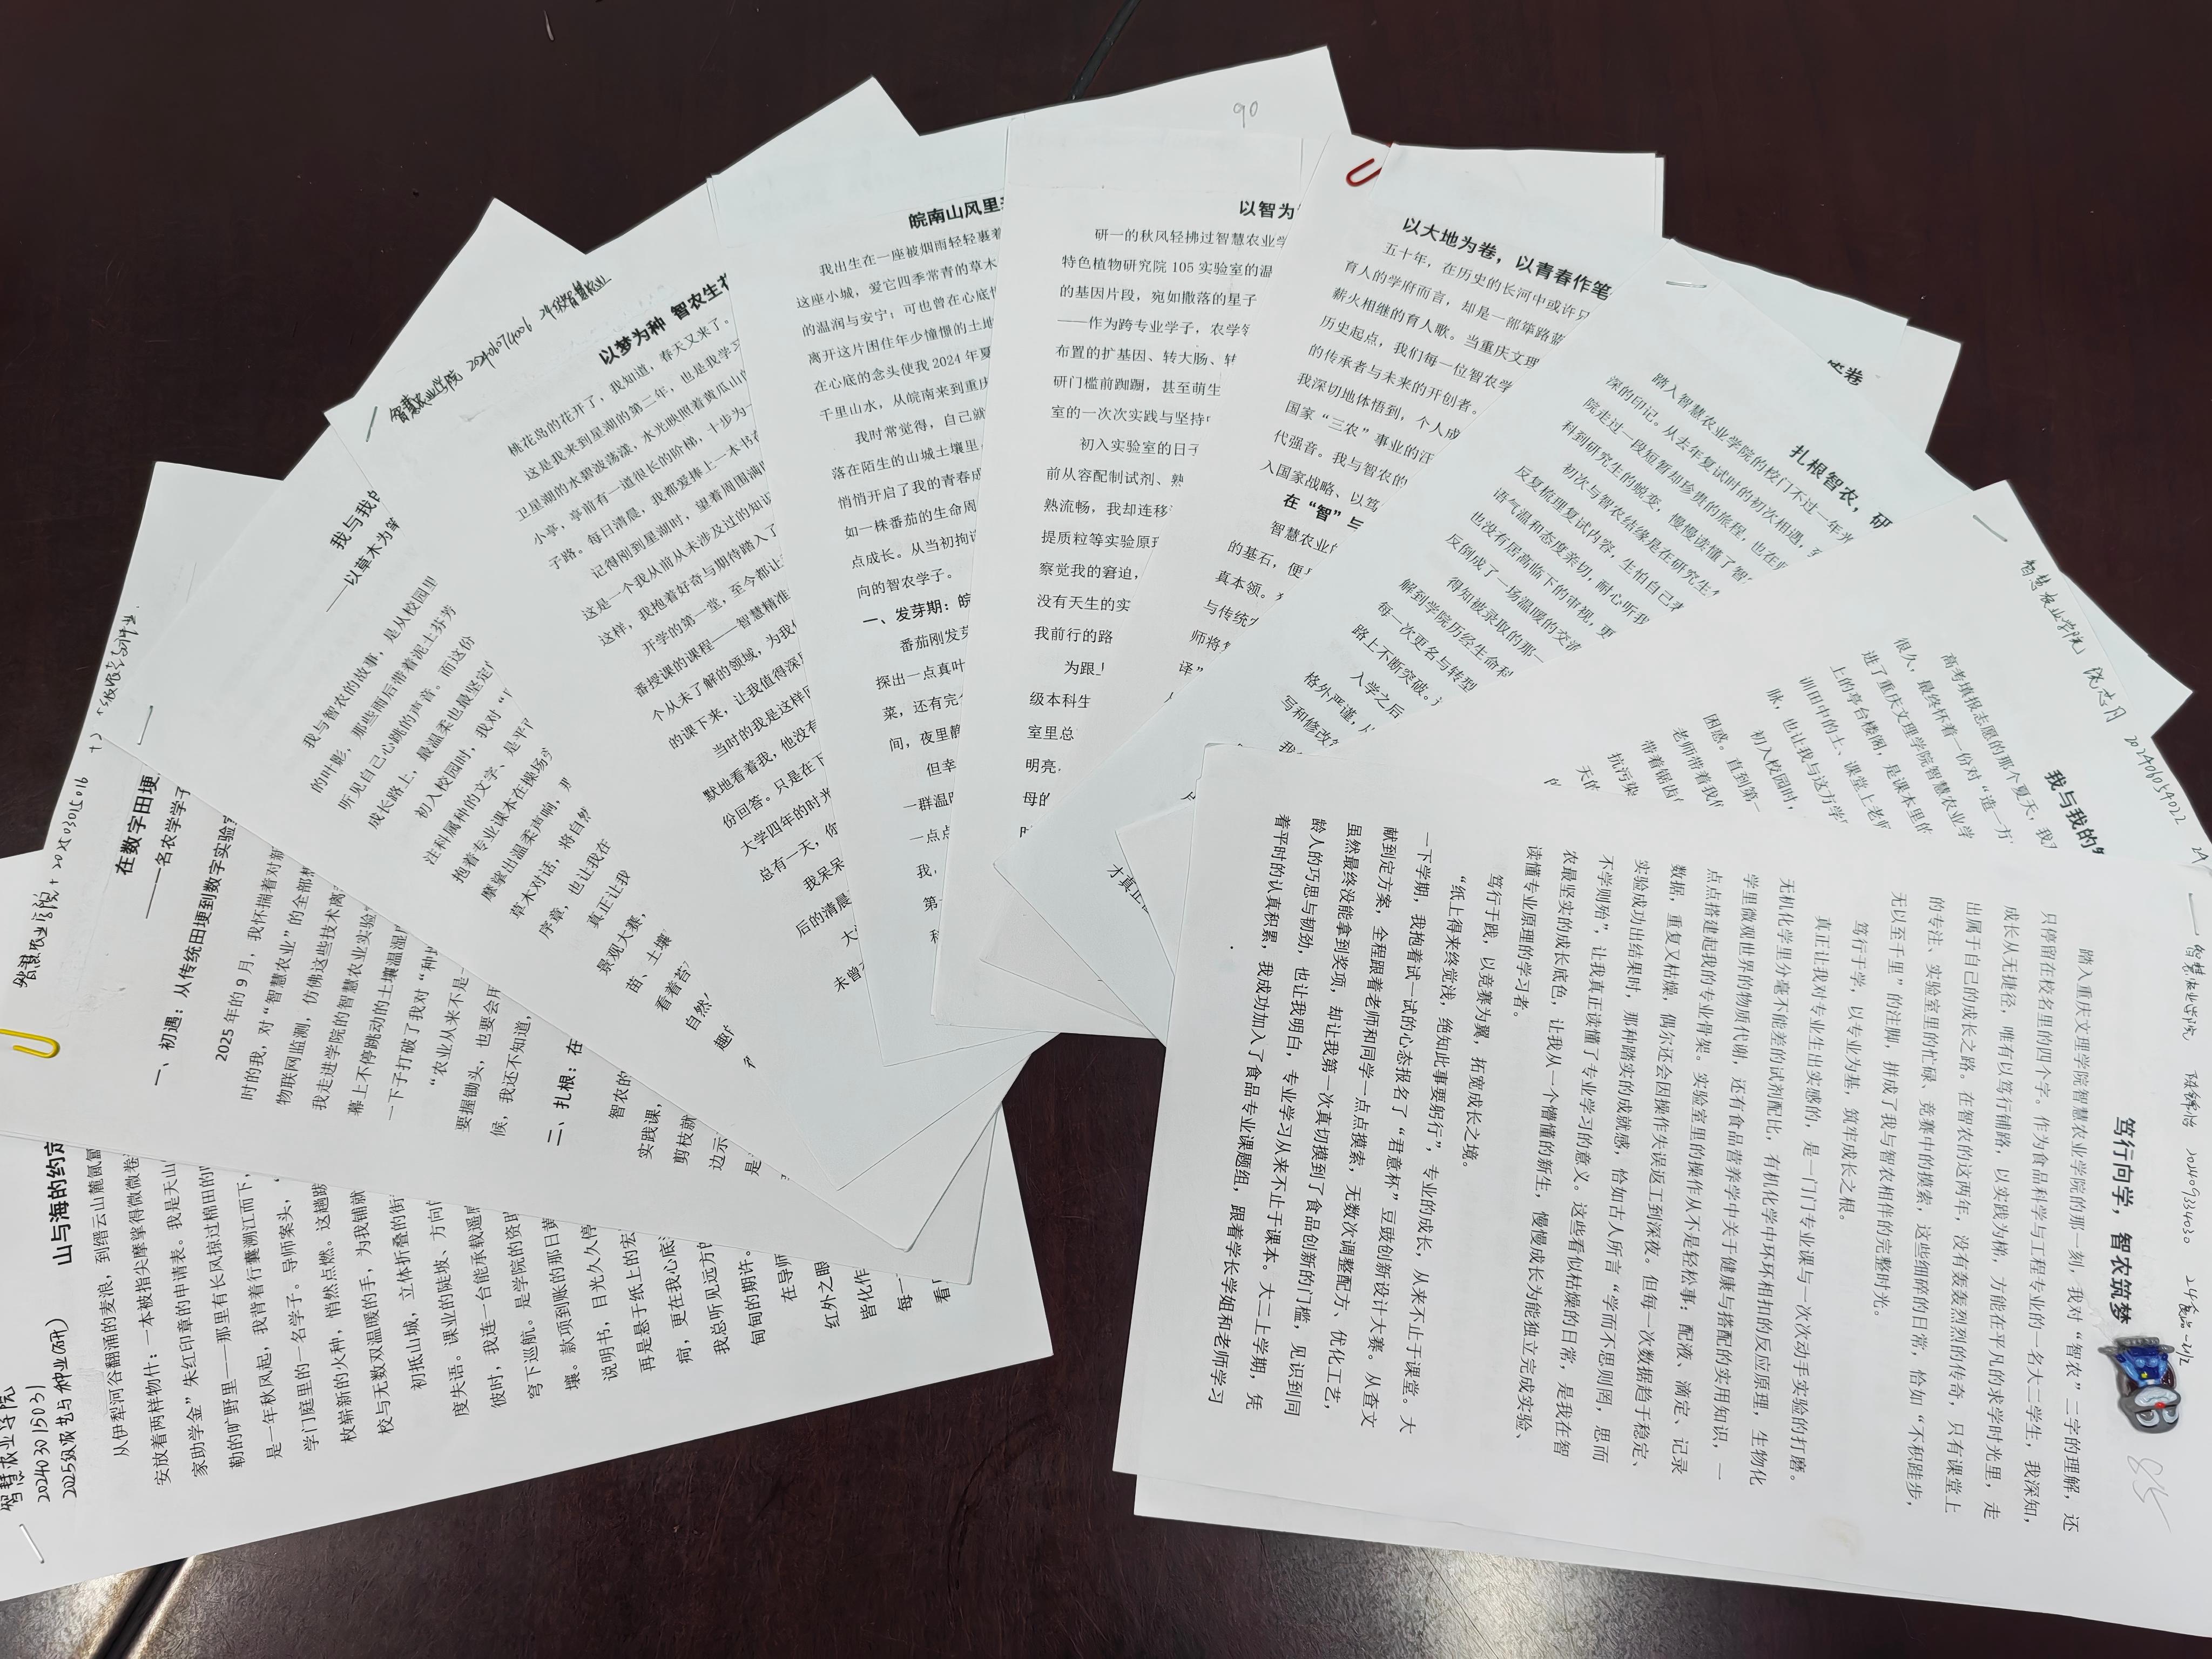 智慧农业学院
20240301S031
2025级农艺与种业(研)
山与海的约定
从伊犁河谷翻涌的麦浪，到缙云山麓氤氲
安放着两样物什：一本被指尖摩挲得微微卷
家助学金”朱红印章的申请表。我是天山
勒的旷野里——那里有长风掠过棉田的
是一年秋风起，我背着行囊溯江而下，
学门庭里的一名学子。导师案头，
枚崭新的火种，悄然点燃。这趟跨
校与无数双温暖的手，为我铺就
初抵山城，立体折叠的街
度失语。课业的陡坡、方向
彼时，我连一台能承载遥感
穹下巡航。是学院的资助
壤。款项到账的那日黄
说明书，目光久久停
再是悬于纸上的宏
疴，更在我心底
我总听见远方
甸甸的期许。
在导师
红外之眼
皆化作
每一
看
智慧农业学院
在数字田埂
——一名农学学子
一、初遇：从传统田埂到数字实验室
2025年的9月，我怀揣着对新
时的我，对“智慧农业”的全部想
物联网监测，仿佛这些技术离
我走进学院的智慧农业实验室
幕上不停跳动的土壤温湿度
一下子打破了我对“种
“农业从来不是
要握锄头，也要会用
候，我还不知道，
二、扎根：在
智农的
实践课，
剪枝就
边示
是
我与我的
——以草木为笔
我与智农的故事，是从校园里
的叶影，那些雨后带着泥土芬芳
听见自己心跳的声音。而这份
成长路上，最温柔也最坚定
初入校园时，我对“
注科属种的文字、是平
抱着专业课本在操场
摩挲出温柔声响，
草木对话，将自然
序章，也让我在
真正让我
景观大赛，
苗、土壤
看着苔
自然
趣
智慧农业学院 202406074006 24级智慧林业
以梦为种 智农生花
桃花岛的花开了，我知道，春天又来了。
这是我来到星湖的第二年，也是我学习
卫星湖的水碧波荡漾，水光映照着黄瓜山的
小亭，亭前有一道很长的阶梯，十步为一
子路。每日清晨，我都爱捧上一本书在
记得刚到星湖时，望着周围满
这是一个我从前从未涉及过的知识
这样，我抱着好奇与期待踏入了
开学的第一堂，至今都让
番授课的课程——智慧精准
个从未了解的领域，为我
的课下来，让我值得深
当时的我是这样
默地看着我，他没有
份回答。只是在下
大学四年的时光
总有一天，你
我呆呆
后的清晨
大
未曾
皖南山风里
我出生在一座被烟雨轻轻裹着
这座小城，爱它四季常青的草木
的温润与安宁；可也曾在心底
离开这片困住年少憧憬的土地
在心底的念头使我2024年夏
千里山水，从皖南来到重庆
我时常觉得，自己就
落在陌生的山城土壤里
悄悄开启了我的青春成
如一株番茄的生命周
点成长。从当初拘谨
向的智农学子。
一、发芽期：皖
番茄刚发芽
探出一点真叶
菜，还有完
间，夜里静
但幸
一群温暖
一点点
我，
第一
90
以智为
研一的秋风轻拂过智慧农业学
特色植物研究院105实验室的温
的基因片段，宛如撒落的星子
——作为跨专业学子，农学
布置的扩基因、转大肠、转
研门槛前踟蹰，甚至萌生
室的一次次实践与坚持中
初入实验室的日子
前从容配制试剂、熟
熟流畅，我却连移液
提质粒等实验原理
察觉我的窘迫，
没有天生的实
我前行的路
为跟上
级本科生
室里总
明亮。
母的
以大地为卷，以青春作笔
五十年，在历史的长河中或许只
育人的学府而言，却是一部筚路蓝
薪火相继的育人歌。当重庆文理
历史起点，我们每一位智农学
的传承者与未来的开创者。
我深切地体悟到，个人成
国家“三农”事业的汪
代强音。我与智农的
入国家战略、以笃
在“智”与
智慧农业
的基石，便
真本领。
与传统
师将
译”
卷
扎根智农，研
踏入智慧农业学院的校门不过一年光
深的印记。从去年复试时的初次相遇，到
院走过一段短暂却珍贵的旅程，也在
科到研究生的蜕变，慢慢读懂了智
初次与智农结缘是在研究生
反复梳理复试内容，生怕自己
语气温和态度亲切，耐心听我
也没有居高临下的审视，更
反倒成了一场温暖的交流
得知被录取的那一
解到学院历经生命科
每一次更名与转型
路上不断突破。
入学之后
格外严谨，从
写和修改
才真正
智慧农业学院 阮志月 202406054022
我与我的
高考填报志愿的那个夏天，我
很久，最终怀着一份对“造一方
进了重庆文理学院智慧农业学
上的亭台楼阁，是课本里的
训田中的土、课堂上老师
脉，也让我与这方学
初入校园时，
困惑。直到第一
老师带着我们
带着锯齿
抗污染
天的
智慧农业学院 202409334030
笃行向学，智农筑梦
85
踏入重庆文理学院智慧农业学院的那一刻，我对“智农”二字的理解，还
只停留在校名里的四个字。作为食品科学与工程专业的一名大二学生，我深知，
成长从无捷径，唯有以笃行铺路，以实践为梯，方能在平凡的求学时光里，走
出属于自己的成长之路。在智农的这两年，没有轰轰烈烈的传奇，只有课堂上
的专注、实验室里的忙碌、竞赛中的摸索，这些细碎的日常，恰如“不积跬步，
无以至千里”的注脚，拼成了我与智农相伴的完整时光。
笃行于学，以专业为基，筑牢成长之根。
真正让我对专业生出实感的，是一门门专业课与一次次动手实验的打磨。
无机化学里分毫不能差的试剂配比，有机化学中环环相扣的反应原理，生物化
学里微观世界的物质代谢，还有食品营养学中关于健康与搭配的实用知识，一
点点搭建起我的专业骨架。实验室里的操作从不是轻松事：配液、滴定、记录
数据，重复又枯燥，偶尔还会因操作失误返工到深夜。但每一次数据趋于稳定、
实验成功出结果时，那种踏实的成就感，恰如古人所言“学而不思则罔，思而
不学则殆”，让我真正读懂了专业学习的意义。这些看似枯燥的日常，是我在智
农最坚实的成长底色，让我从一个懵懂的新生，慢慢成长为能独立完成实验、
读懂专业原理的学习者。
笃行于践，以竞赛为翼，拓宽成长之境。
“纸上得来终觉浅，绝知此事要躬行”，专业的成长，从来不止于课堂。大
一下学期，我抱着试一试的心态报名了“君意杯”豆豉创新设计大赛。从查文
献到定方案，全程跟着老师和同学一点点摸索，无数次调整配方、优化工艺，
虽然最终没能拿到奖项，却让我第一次真切摸到了食品创新的门槛，见识到同
龄人的巧思与韧劲，也让我明白，专业学习从来不止于课本。大二上学期，凭
着平时的认真积累，我成功加入了食品专业课题组，跟着学长学姐和老师学习